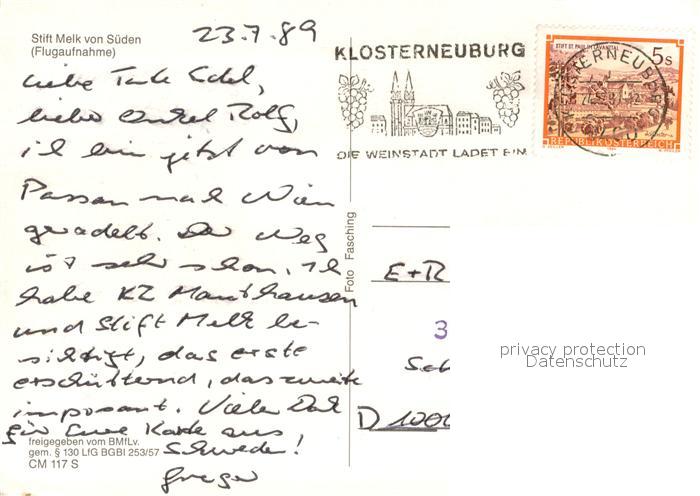 Stift Melk von Süden
(Flugaufnahme)
23.7.89
Liebe Tante Edel,
lieber Onkel Rolf,
ich bin jetzt von
Passau nach Wien
geradelt. Der Weg
ist sehr schön. Ich
habe KZ Mauthausen
und Stift Melk be-
sichtigt, das erste
erschütternd, das zweite
imposant. Vielen Dank
für Eure Karte aus
Schweden!
Gregor
freigegeben vom BMfLv.
gem. § 130 LfG BGBl 253/57
CM 117 S
Foto Fasching
KLOSTERNEUBURG
DIE WEINSTADT LADET EIN
STIFT ST. PAUL IM LAVANTTAL
5 S
REPUBLIK ÖSTERREICH
E+R
3
Sch
D 1000
privacy protection
Datenschutz